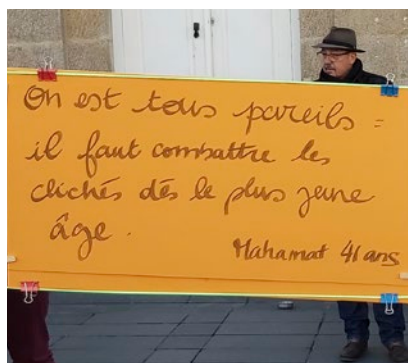 On est tous pareils =
il faut combattre les
clichés dés le plus jeune
âge.
Mahamat 41 ans